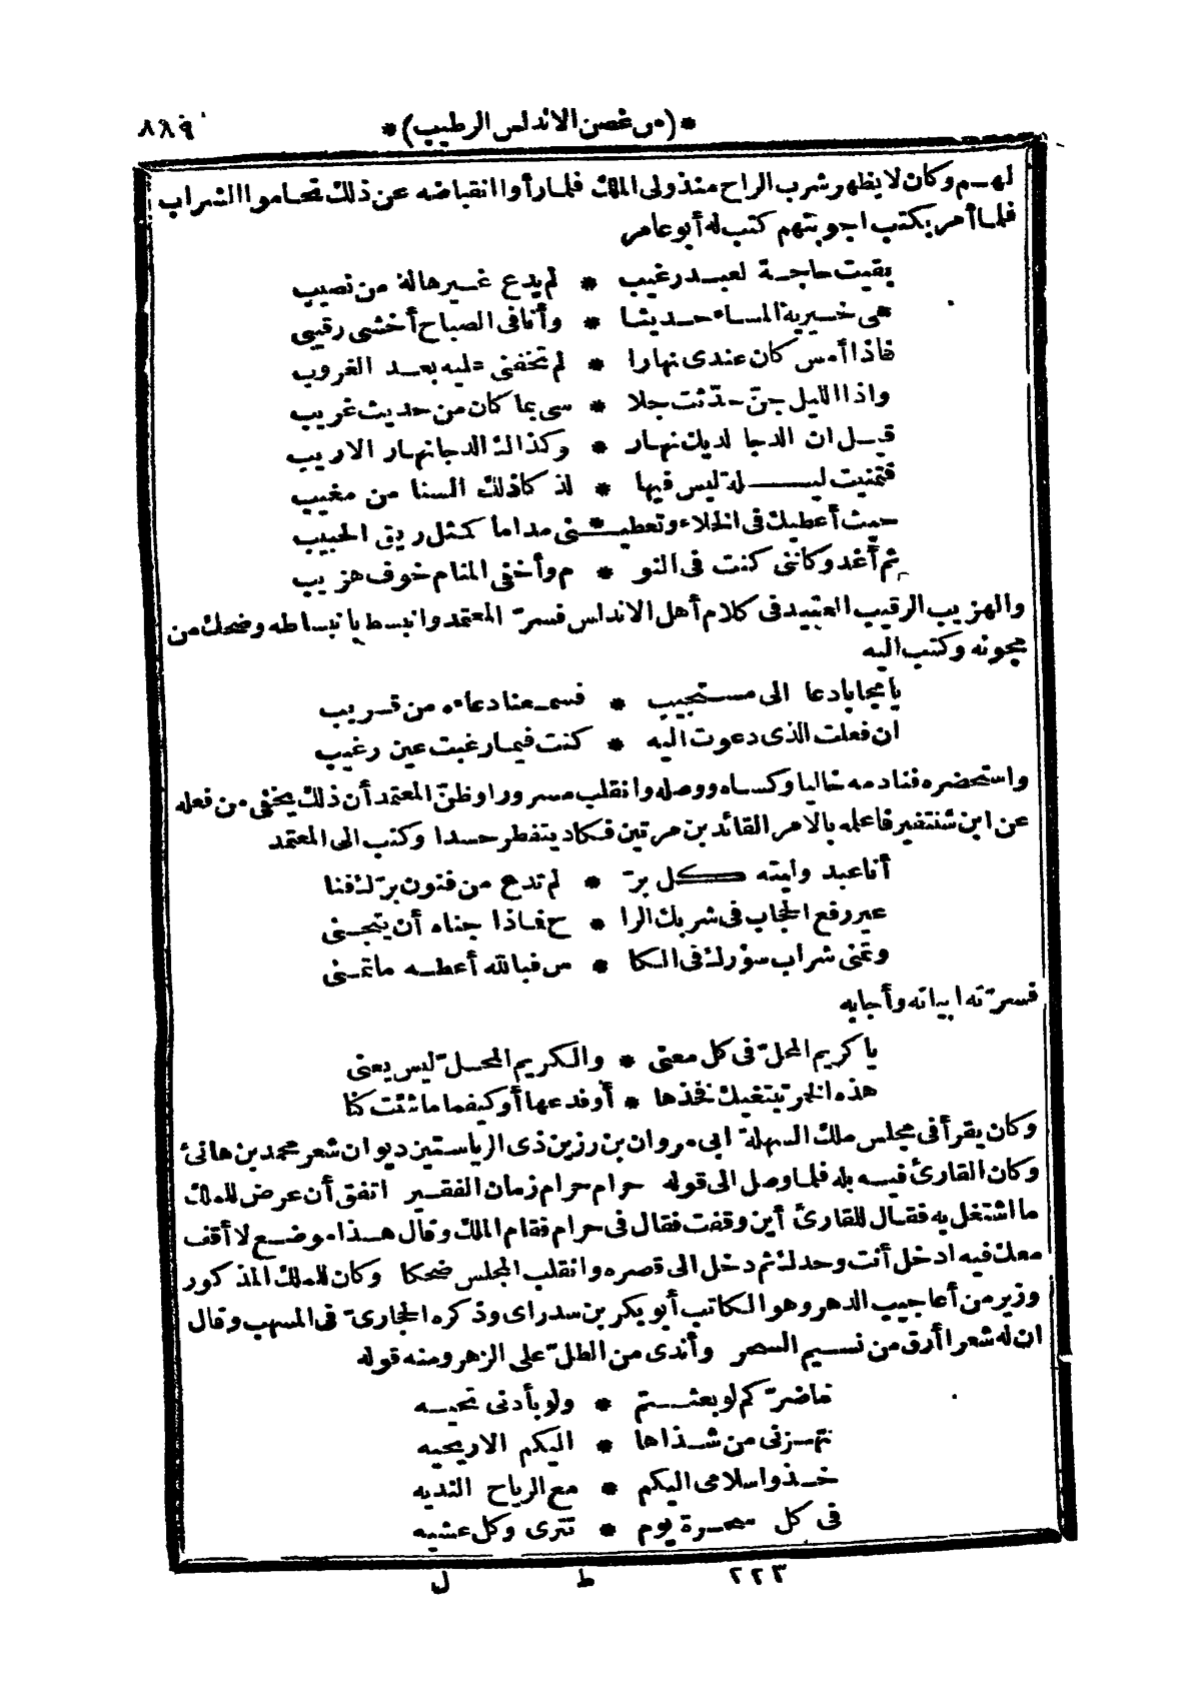 * (من غصن الاندلس الرطيب) * ٨٨٩
لهم وكان لا يظهر شرب الراح منذ ولى الملك فلما رأوا انقباضه عن ذلك تحاموا الشراب
فلما أمر بكتب اجوبتهم كتب له أبو عامر
بقيت حاجة لعبد رغيب * لم يدع غيرها له من نصيب
هى خيرية المساء حديثا * وأنا فى الصباح أخشى رقيبى
فاذا أمس كان عندى نهارا * لم تخفنى عليه بعد الغروب
واذا الليل جنّ حدّثت جلا * سى بما كان من حديث غريب
قيل ان الدجا لديك نهار * وكذاك الدجا نهار الاريب
فتمنيت ليلة ليس فيها * لذكا ذلك السنا من مغيب
حيث أعطيك فى الخلاء وتعطيـ * ـنى مداما كمثل ريق الحبيب
ثم أغدو كاننى كنت فى النو * م وأخفى المنام خوف هزيب
والهزيب الرقيب العتيد فى كلام أهل الاندلس فسرّ المعتمد وانبسط بانبساطه وضحك من
مجونه وكتب اليه
يا مجابا دعا الى مستجيب * فسمعنا دعاءه من قريب
ان فعلت الذى دعوت اليه * كنت فيما رغبت عين رغيب
واستحضره فنادمه خاليا وكساه ووصله وانقلب مسرورا وظنّ المعتمد أن ذلك يخفى من فعله
عن ابن شنتفير فاعلمه بالامر القائد بن مرتين فكاد يتفطر حسدا وكتب الى المعتمد
أنا عبد وليته كل برّ * لم تدع من فنون برّك فنا
غير رفع الحجاب فى شربك الرا * ح فماذا جناه أن يتجنى
وتمنى شراب سؤرك فى الكا * س فبالله أعطه ما تمنى
فسرّته ابياته وأجابه
يا كريم المحلّ فى كل معنى * والكريم المحلّ ليس يعنى
هذه الخمر تبتغيك فخذها * أو فدعها أو كيفما ما شئت كنا
وكان يقرأ فى مجلس ملك السهلة ابى مروان بن رزين ذى الرياستين ديوان شعر محمد بن هانئ
وكان القارئ فيه بله فلما وصل الى قوله حرام حرام زمان الفقير اتفق أن عرض للملك
ما اشتغل به فقال للقارئ أين وقفت فقال فى حرام فقام الملك وقال هذا موضع لا أقف
معك فيه ادخل أنت وحدك ثم دخل الى قصره وانقلب المجلس ضحكا وكان للملك المذكور
وزير من أعاجيب الدهر وهو الكاتب أبو بكر بن سدراى وذكره الحجارىّ فى المسهب وقال
ان له شعرا أرق من نسيم السحر وأندى من الطلّ على الزهر ومنه قوله
ماضرّكم لو بعثتم * ولو بأدنى تحيه
تهزنى من شذاها * اليكم الاريحيه
خذوا سلامى اليكم * مع الرياح النديه
فى كل سحرة يوم * تترى وكل عشيه
٢٢٣ ط ل